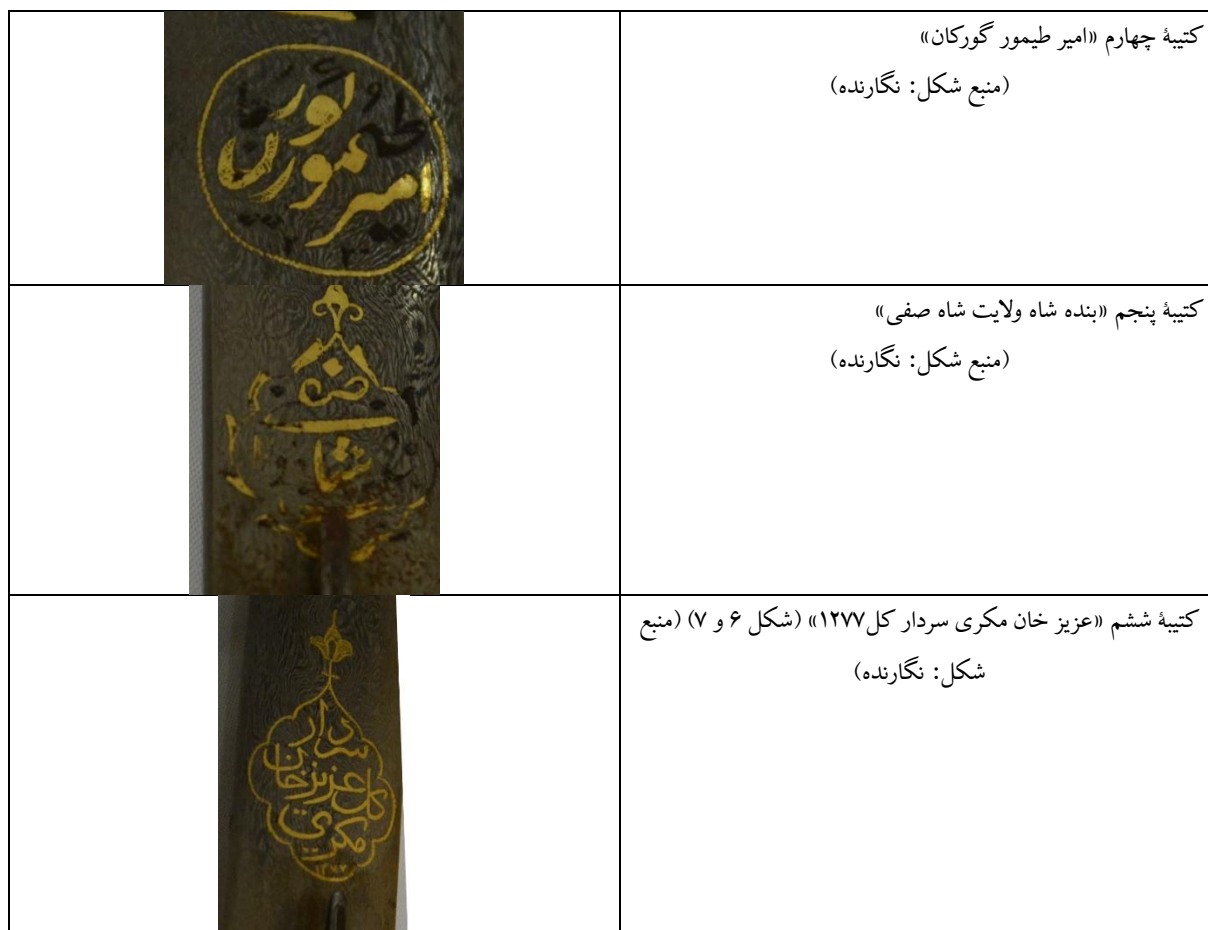 کتیبهٔ چهارم «امیر طیمور گورکان»
(منبع شکل: نگارنده)
امیر
کتیبهٔ پنجم «بنده شاه ولایت شاه صفی»
(منبع شکل: نگارنده)
کتیبهٔ ششم «عزیز خان مکری سردار کل۱۲۷۷» (شکل ۶ و ۷) (منبع
شکل: نگارنده)
سردار
کل عزیز خان
مکری
۱۲۷۷